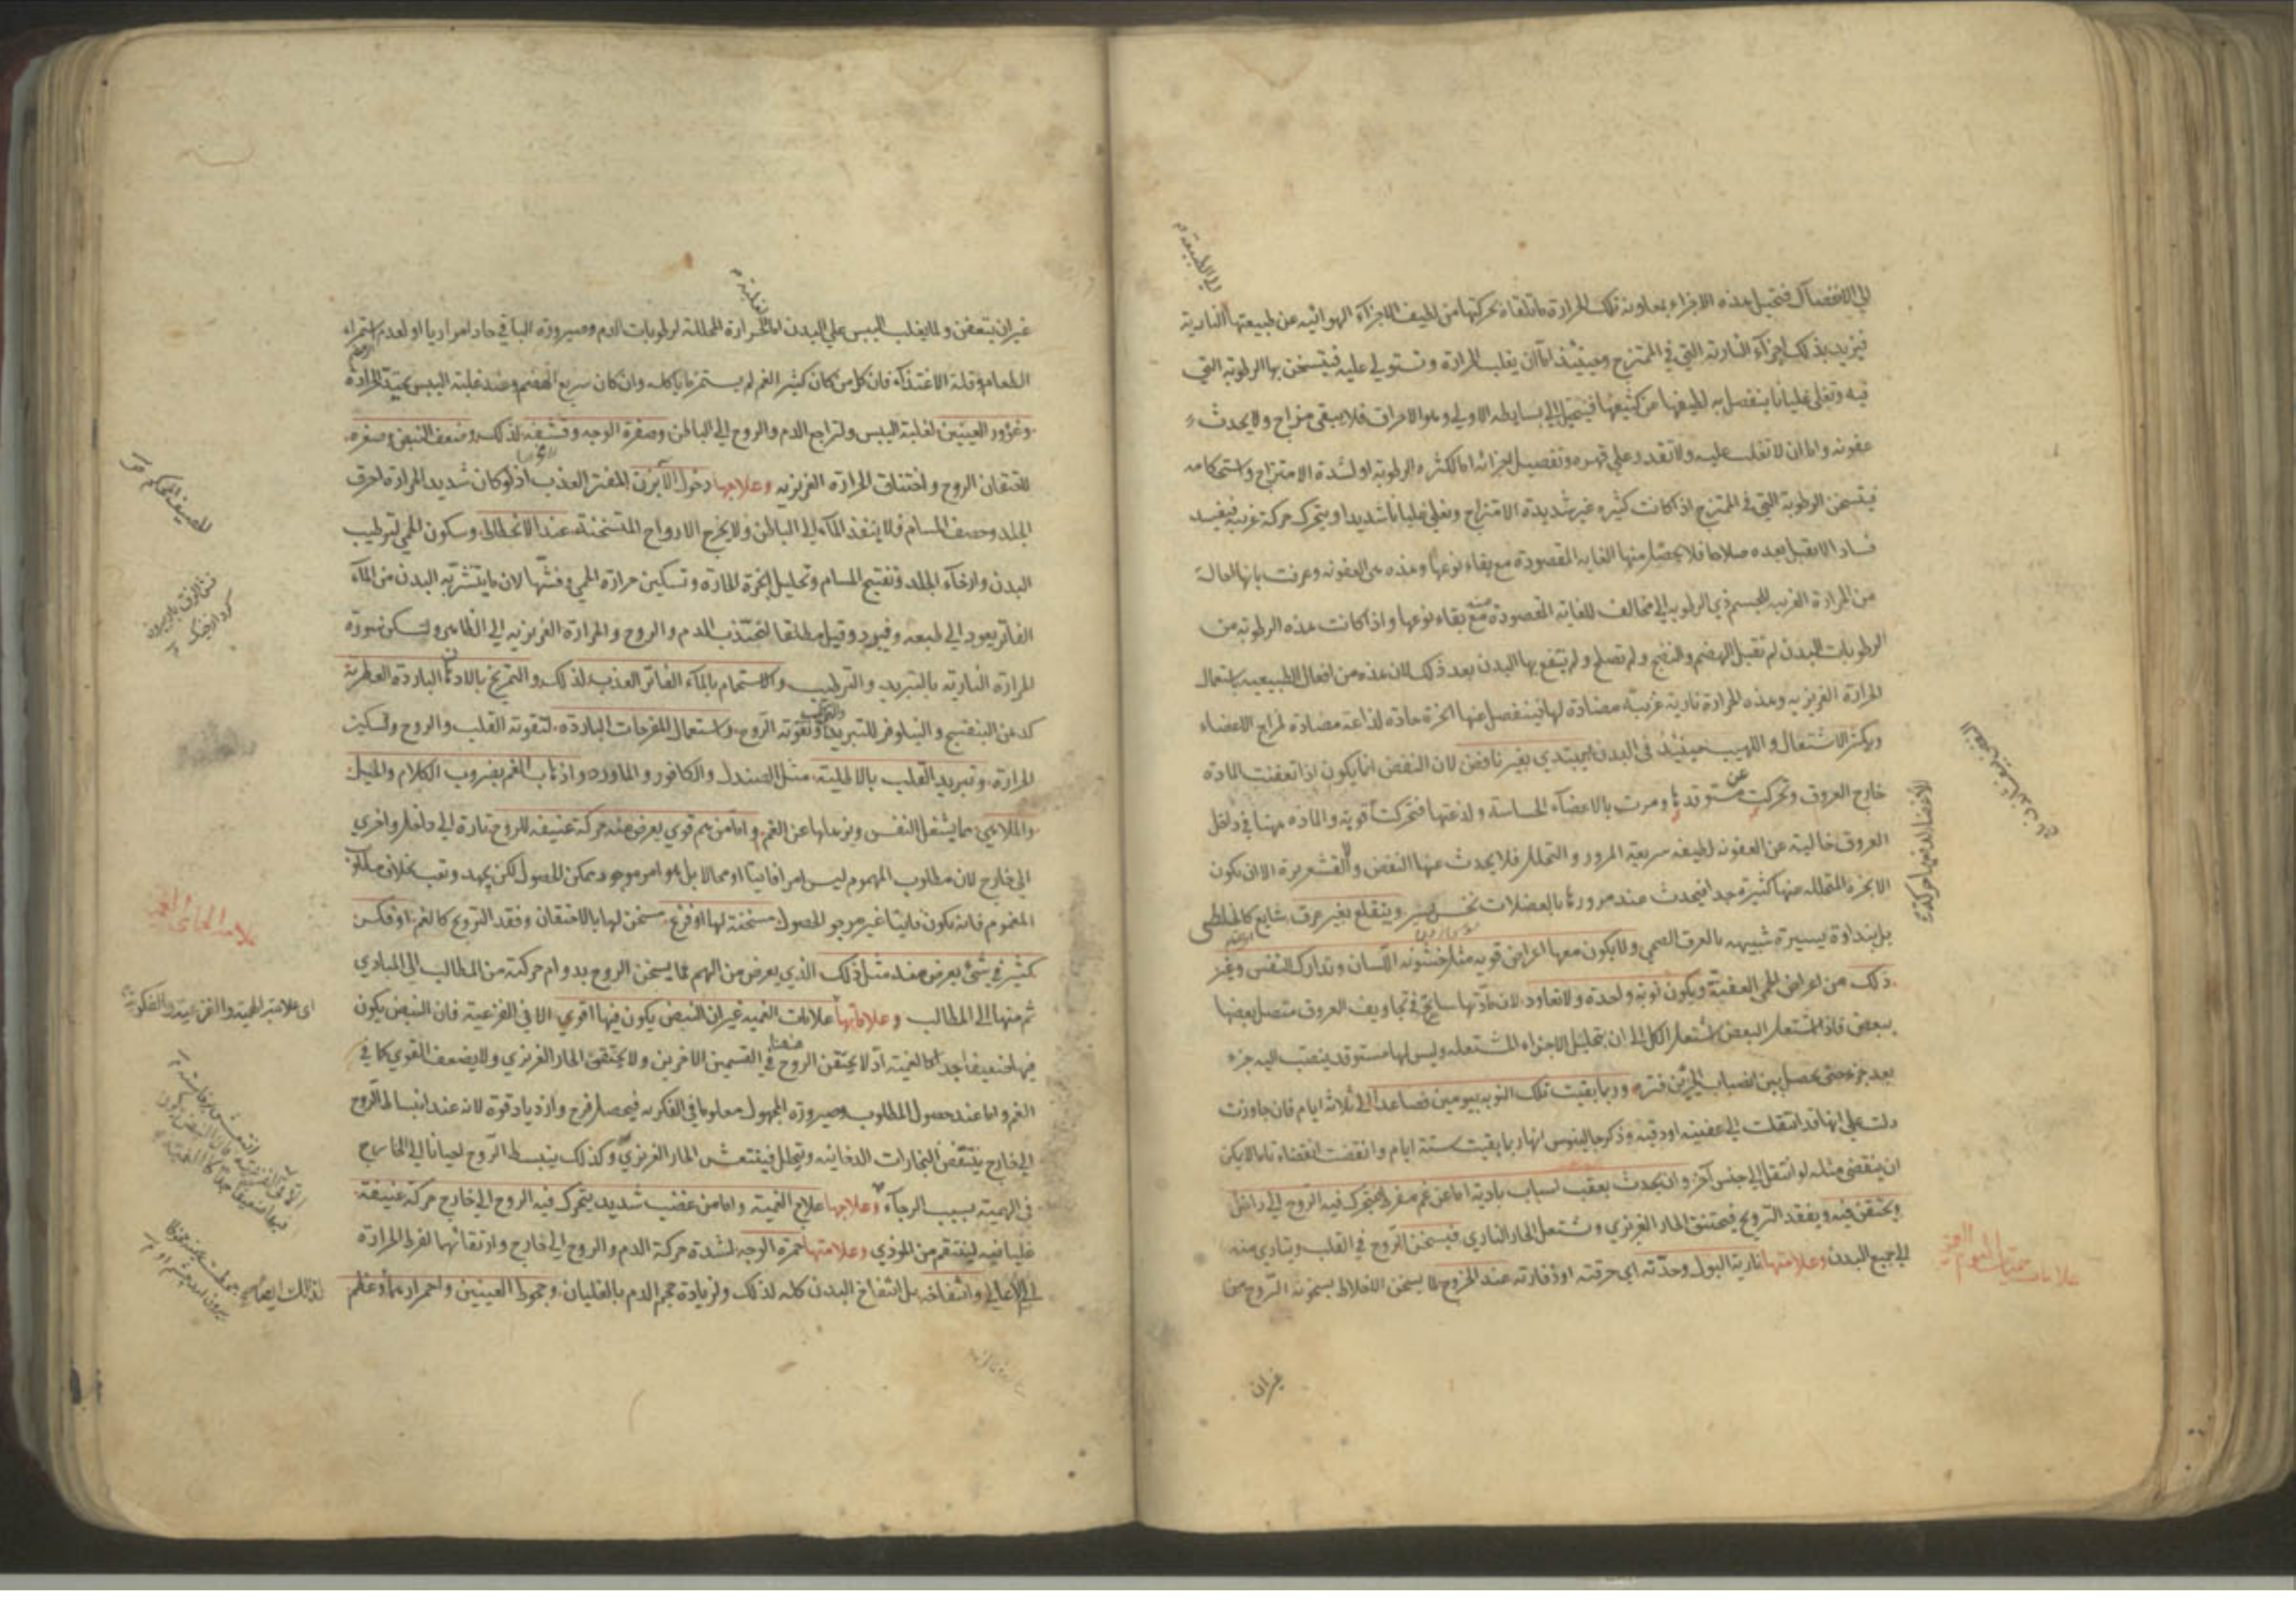 الى الانفصال فتحيل هذه الاجزاء بمعاونة تلك الحرارة ماتلقاه بحركتها من لطيف الاجزاء الهوائيه عن طبيعتها النارية
فيزيد بذلك اجزاء النارية التي في الممتزج وحينئذ اما ان يغلب الحرارة وتستولي عليه فيتسخن بها الرطوبة التي
فيه وتغلى غليانا ينفصل به لطيفها من كثيفها فيتحيل الى بسايطه الاولى وهو الاحراق فلا يبقى مزاج ولا يحدث
عفونه واما ان لا تغلب عليه ولا تقدر على قهره وتفصيل اجزائه اما لكثرة الرطوبة او لشدة الامتزاج واستحكامه
فيتسخن الرطوبة التي في الممتزج اذ كانت كثيره غير شديدة الامتزاج وتغلي غليانا شديدا ويتحرك حركة غريبه فيفسد
فسادا لا يقبل بعده صلاحا فلا يحصل منها الغاية المقصودة مع بقاء نوعها وهذه هي العفونه وعرفت بانها احالة
من الحرارة الغريبه للجسم ذي الرطوبه الى مخالف للغاية المقصودة منه مع بقاء نوعها واذا كانت هذه الرطوبة من
الرطوبات البدن لم تقبل الهضم والنضج ولم تصلح ولم ينتفع بها البدن بعد ذلك لان هذه من افعال الطبيعيه باستعمال
الحرارة الغريزيه وهذه الحرارة نارية غريبة مضادة لها فينفصل عنها ابخرة حادة لذاعة مضادة لمزاج الاعضاء
ويكثر الاشتعال واللهيب حينئذ في البدن يبتدي بغير نافض لان النفض انما يكون اذا تعفنت المادة
خارج العروق وتحركت عن مستوقدها ومرت بالاعضاء الحساسة ولذعتها فتحركت قوية والمادة ههنا في داخل
العروق خالية عن العفونه لطيفه سريعة المرور والتحلل فلا يحدث عنها النفض والقشعريرة الا ان يكون
الابخرة المتحلله عنها كثيرة جدا فيحدث عند مرورها بالعضلات نخس يسير ويتقلع بغير عرق شايع كالخلطى
بل بنداوة يسيرة شبيهه بالعرق الصحي ولا يكون معها اعراض قويه مثل خشونه اللسان وتدارك النفس وغير
ذلك من اعراض الحمى العفنية ويكون نوبة واحدة ولا تعاود لان مادتها سايح في تجاويف العروق متصل بعضها
ببعض فاذا اشتعل البعض اشتعل الكل الى ان يتحلل الاجزاء المشتعله وليس لها مستوقد ينصب اليه جزء
بعد جزء حتى يحصل بين انصباب الجزئين فترة وربما بقيت تلك النوبه يومين فصاعدا الى ثلاثة ايام فان جاوزت
دلت على انها قد انتقلت الى عفنيه او دقيه وذكر جالينوس انها ربما بقيت ستة ايام وانقضت انقضاء تاما لا يمكن
ان ينقضى مثله لو انتقل الى جنس آخر وان يحدث بعقب اسباب بادية اما عن غم مفرط يتحرك فيه الروح الى داخل
ويحتقن فيه ويفقد الترويح فيختنق الحار الغريزي ويشتعل الحار الناري فيسخن الروح في القلب ويتادى منه
الى جميع البدن وعلامتها نارية البول وحدته اي حرقته اوذفارته عند الخروج لما يسخن الاخلاط بسخونة الروح من
غيران
غيران يتعفن ولما يغلب اليبس على البدن اما للحرارة المحللة لرطوبات الدم وصيرورة الباقي حادا مراريا او لعدم استمراء
الطعام وقلة الاغتذاء فان كل من كان كثير الغم لم يستمرئ ما ياكله وان كان سريع الهضم وعند غلبة اليبس تحتد الحرارة
وغؤور العينين لغلبة اليبس ولتراجع الدم والروح الى الباطن وصفرة الوجه وقشفه لذلك وضعف النبض وصغره
لاحتقان الروح واختناق الحرارة الغريزيه وعلاجها دخول الآبزن المفتر العذب اذ لو كان شديد الحرارة لاحرق
الجلد وحصف المسام فلا ينفذ الماء الى الباطن ولا يخرج الارواح المتسخنة عند الانحطاط وسكون الحمى لترطيب
البدن وارخاء الجلد وتفتيح المسام وتحليل ابخرة الحارة وتسكين حرارة الحمى وفشها لان ما يتشربه البدن من الماء
الفاتر يعود الى طبعه وفيبرد وقيل مطلقا لتجذب الدم والروح والحرارة الغريزيه الى الظاهر ولتسكن سورة
الحرارة النارية بالتبريد والترطيب وكالاستحمام بالماء الفاتر العذب لذلك والتمريخ بالادهان الباردة العطرية
كدهن البنفسج والنيلوفر للتبريد وتقوية الروح واستعمال المفرحات الباردة لتقوية القلب والروح ولتسكين
الحرارة وتبريد القلب بالاطلية مثل الصندل والكافور والماورد واذهاب الغم بضروب الكلام والحيل
والملاهي مما يشغل النفس ويزيلها عن الغم واما من هم قوي يعرض منه حركة عنيفه للروح تارة الى داخل واخرى
الى خارج لان مطلوب المهموم ليس امرا فايتا او محالا بل هو امر موجود ممكن الحصول لكن بجهد وتعب بخلاف مطلوب
المغموم فانه يكون فايتا غير مرجو الحصول مسخنة لها او فزع مسخن لها بالاحتقان وفقد الترويح كالغم او فكر
كثير في شئ يعرض منه مثل ذلك الذي يعرض من الهم مما يسخن الروح بدوام حركته من المطالب الى المبادي
ثم منها الى المطالب وعلاماتها علامات الغميه غير ان النبض يكون فيها اقوى الا في الفزعية فان النبض يكون
فيها ضعيفا جدا كالغمية اذ لا يحتقن الروح في القسمين الاخرين ولا يختنق الحار الغريزي ولا يضعف القوى كما في
الغم واما عند حصول المطلوب وصيرورة المجهول معلوما في الفكريه فيحصل فرح وازدياد قوة لانه عند انبساط الروح
الى خارج ينتفض البخارات الدخانيه ويتحلل فينتعش الحار الغريزي وكذلك ينبسط الروح احيانا الى الخارج
في الهمية بسبب الرجاء وعلاجها علاج الغمية واما من غضب شديد يتحرك فيه الروح الى خارج حركة عنيفة
غليانيه لينتقم من الموذي وعلامتها حمرة الوجه لشدة حركة الدم والروح الى خارج وارتقائهما لفرط الحرارة
الى الاعالي وانتفاخه بل انتفاخ البدن كله لذلك ولزيادة حجم الدم بالغليان وجحوظ العينين واحمرارهما وعظم
اى علامة الهمية والفزعية والفكرية